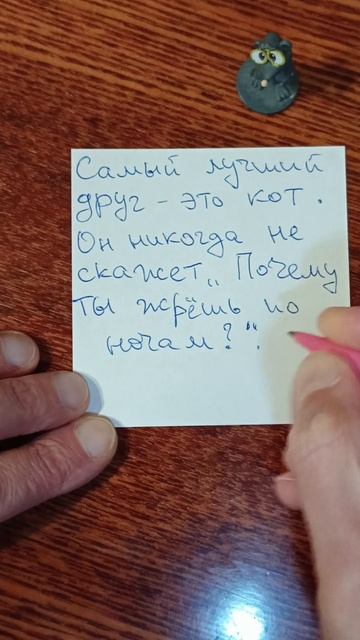 Самый лучший
друг - это кот.
Он никогда не
скажет „Почему
ты жрёшь по
ночам?“.